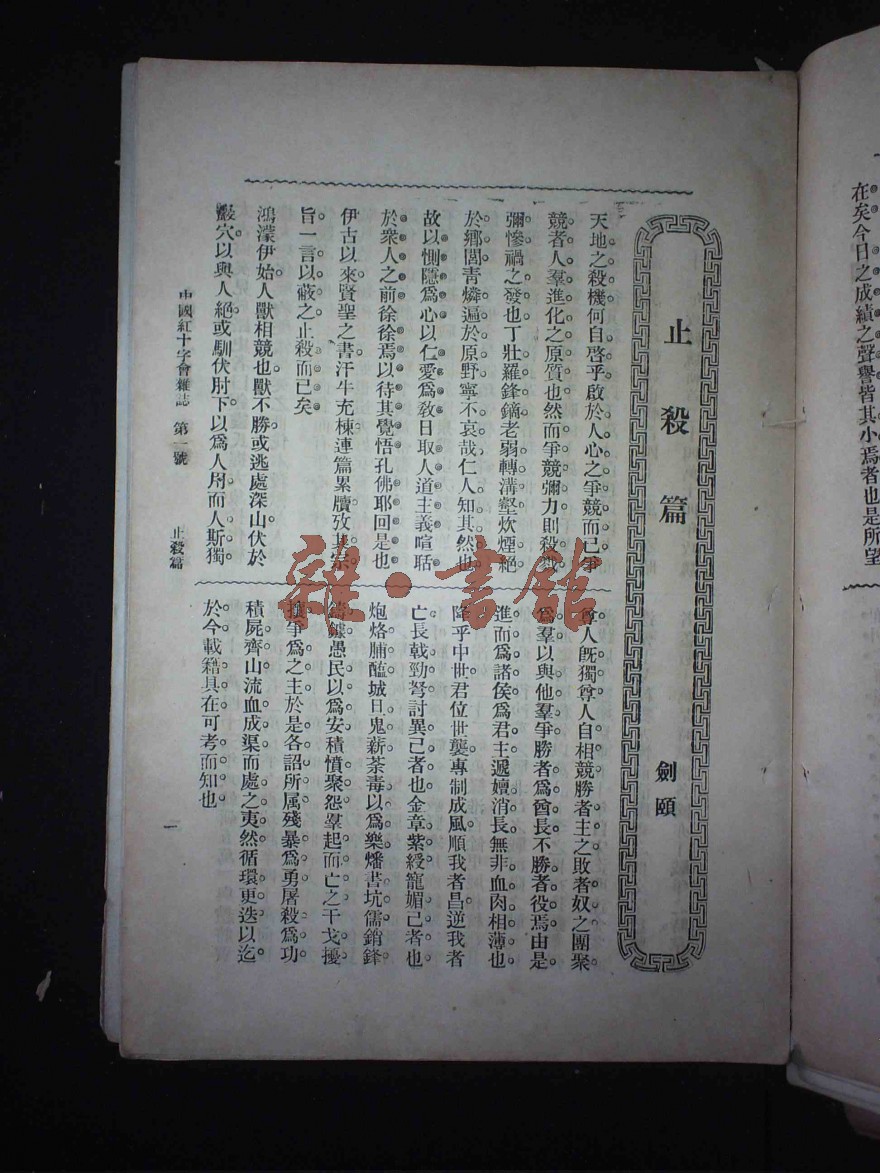 止殺篇
劍頤
天地之殺機何自啓乎啟於人心之爭競而已爭
競者人羣進化之原質也然而爭競彌力則殺戮
彌慘禍之發也丁壯羅鋒鏑老弱轉溝壑炊煙絕
於鄉閭青燐遍於原野寧不哀哉仁人知其然也
故以惻隱爲心以仁愛爲敎日取人道主義喧聒
於衆人之前徐徐焉以待其覺悟孔佛耶回是也
伊古以來賢聖之書汗牛充棟連篇累牘攷其宗
旨一言以蔽之止殺而已矣
鴻濛伊始人獸相競也獸不勝或逃處深山伏於
巖穴以與人絕或馴伏肘下以爲人用而人斯獨
尊人旣獨尊人自相競勝者主之敗者奴之團聚
爲羣以與他羣爭勝者爲酋長不勝者役焉由是
進而爲諸侯爲君主遞嬗消長無非血肉相薄也
降乎中世君位世襲專制成風順我者昌逆我者
亡長戟勁弩討異己者也金章紫綬寵媚己者也
炮烙脯醢城旦鬼薪荼毒以爲樂燔書坑儒銷鋒
鑄鐻愚民以爲安積憤聚怨羣起而亡之干戈擾
攘爭爲之主於是各詔所属殘暴爲勇屠殺爲功
積屍齊山流血成渠而處之夷然循環更迭以迄
於今載籍具在可考而知也
中國紅十字會雜誌 第一號 止殺篇
一
在矣今日之成績之聲譽皆其小焉者也是所望
雜·書館